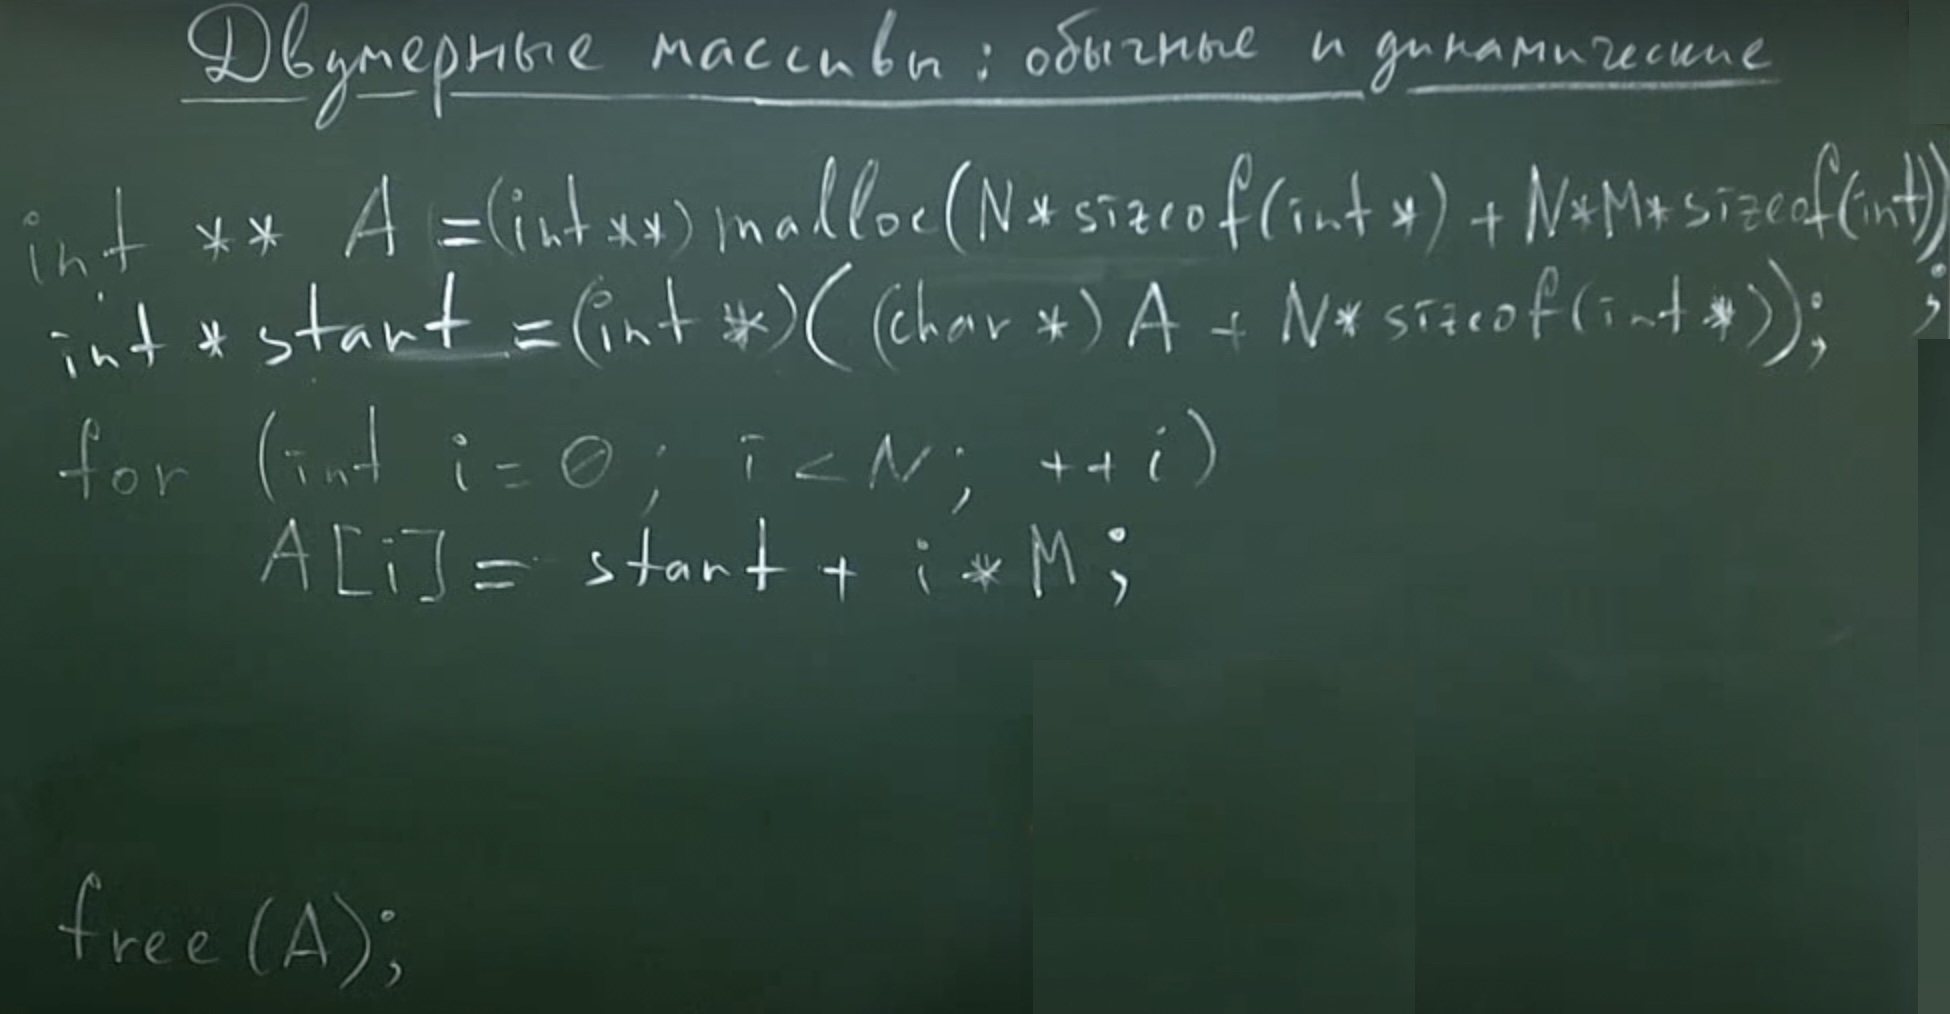 Двумерные массивы: обычные и динамические
int ** A =(int**) malloc(N*sizeof(int*) + N*M*sizeof(int));
int * start =(int *)((char *) A + N*sizeof(int*));
for (int i=0; i<N; ++i)
A[i]= start + i*M;
free(A);